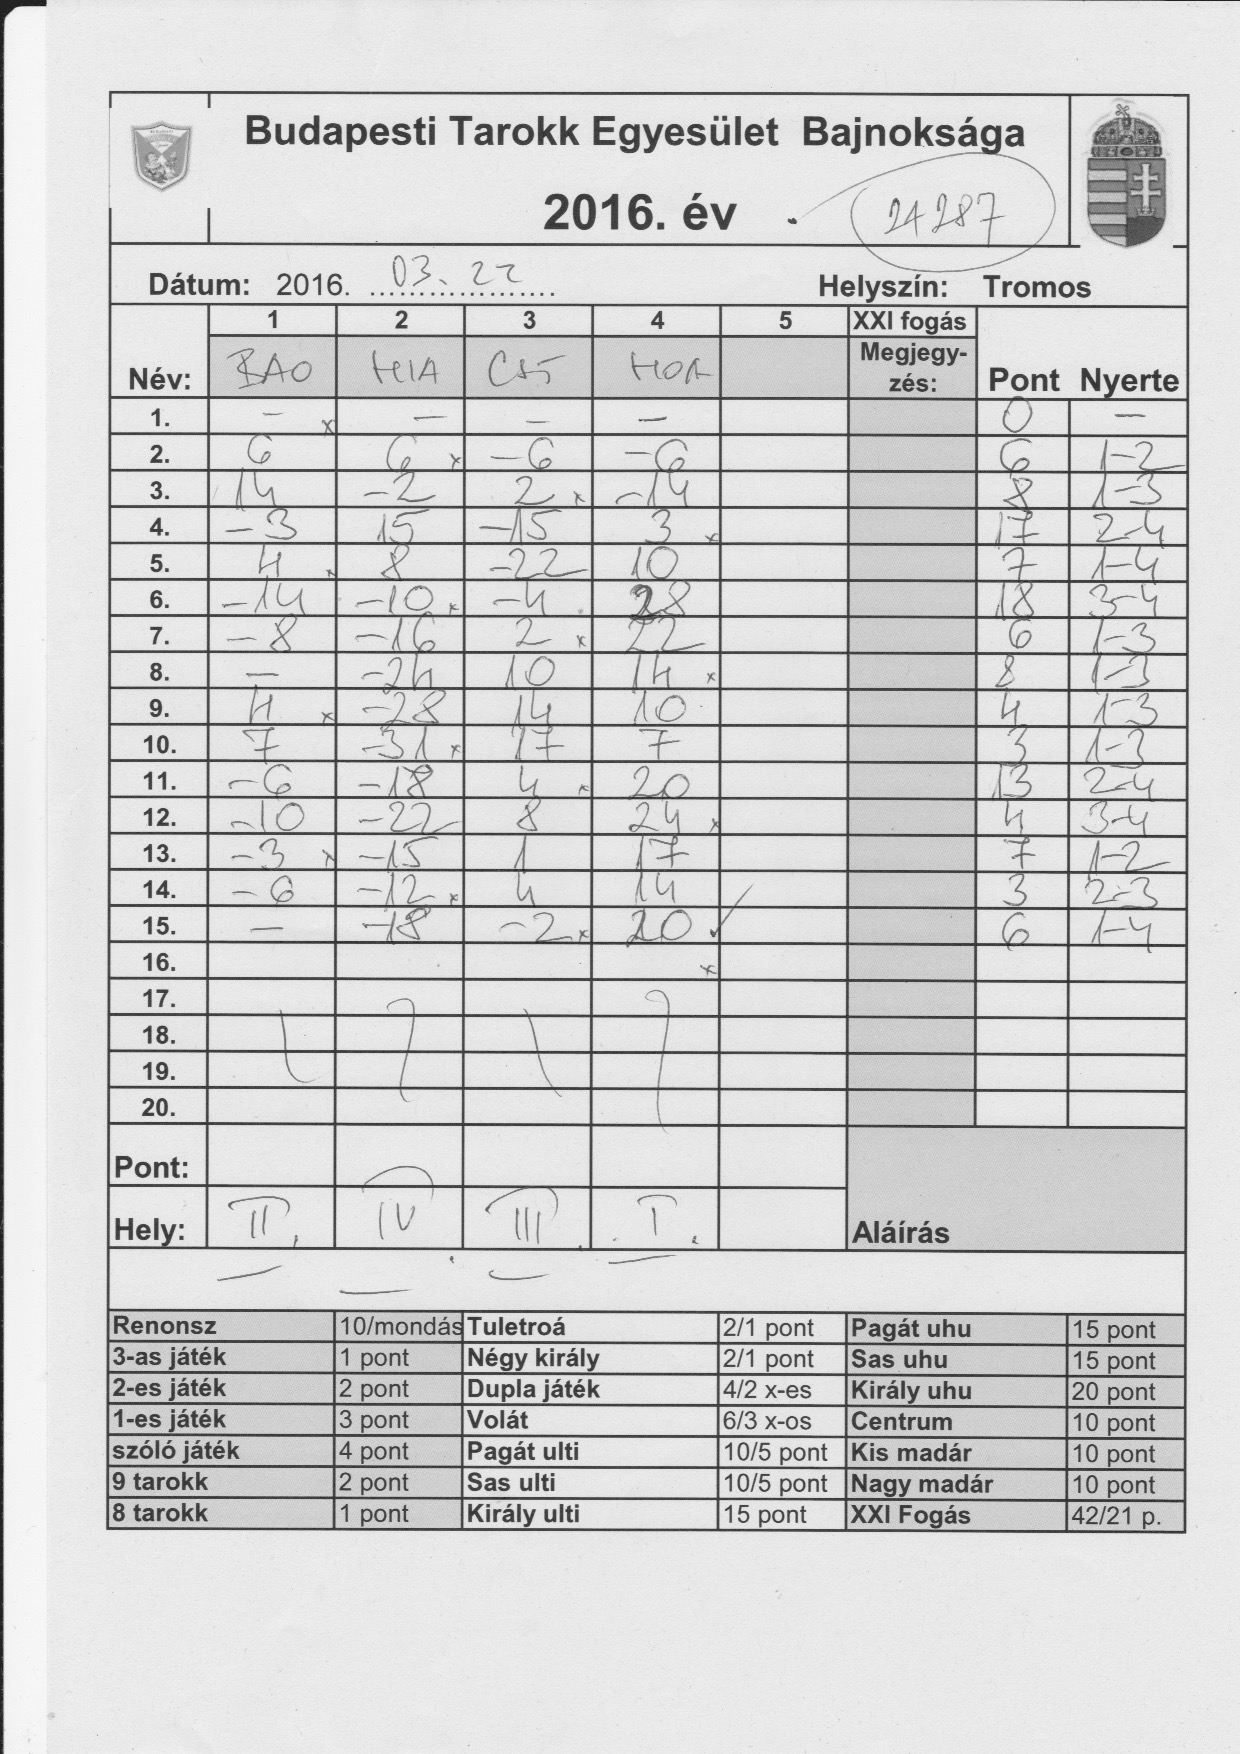 Budapesti Tarokk Egyesület Bajnoksága
2016. év
24287
Dátum: 2016. 03.22
Helyszín: Tromos
1 2 3 4 5 XXI fogás
Név: BAO MIA CSŐ HOA Megjegy-zés: Pont Nyerte
1. – x – – – 0 –
2. 6 6 x –6 –6 6 1–2
3. 14 –2 2 x –14 8 1–3
4. –3 15 –15 3 x 17 2–4
5. 4 x 8 –22 10 7 1–4
6. –14 –10 x –4 28 18 3–4
7. –8 –16 2 x 22 6 1–3
8. – –24 10 14 x 8 1–3
9. 4 x –28 14 10 4 1–3
10. 7 –31 x 17 7 3 1–3
11. –6 –18 4 x 20 13 2–4
12. –10 –22 8 24 x 4 3–4
13. –3 x –15 1 17 7 1–2
14. –6 –12 x 4 14 3 2–3
15. – –18 –2 x 20 6 1–4
16. x
17.
18.
19.
20.
Pont:
Hely: II. IV III. I. Aláírás
Renonsz 10/mondás Tuletroá 2/1 pont Pagát uhu 15 pont
3-as játék 1 pont Négy király 2/1 pont Sas uhu 15 pont
2-es játék 2 pont Dupla játék 4/2 x-es Király uhu 20 pont
1-es játék 3 pont Volát 6/3 x-os Centrum 10 pont
szóló játék 4 pont Pagát ulti 10/5 pont Kis madár 10 pont
9 tarokk 2 pont Sas ulti 10/5 pont Nagy madár 10 pont
8 tarokk 1 pont Király ulti 15 pont XXI Fogás 42/21 p.